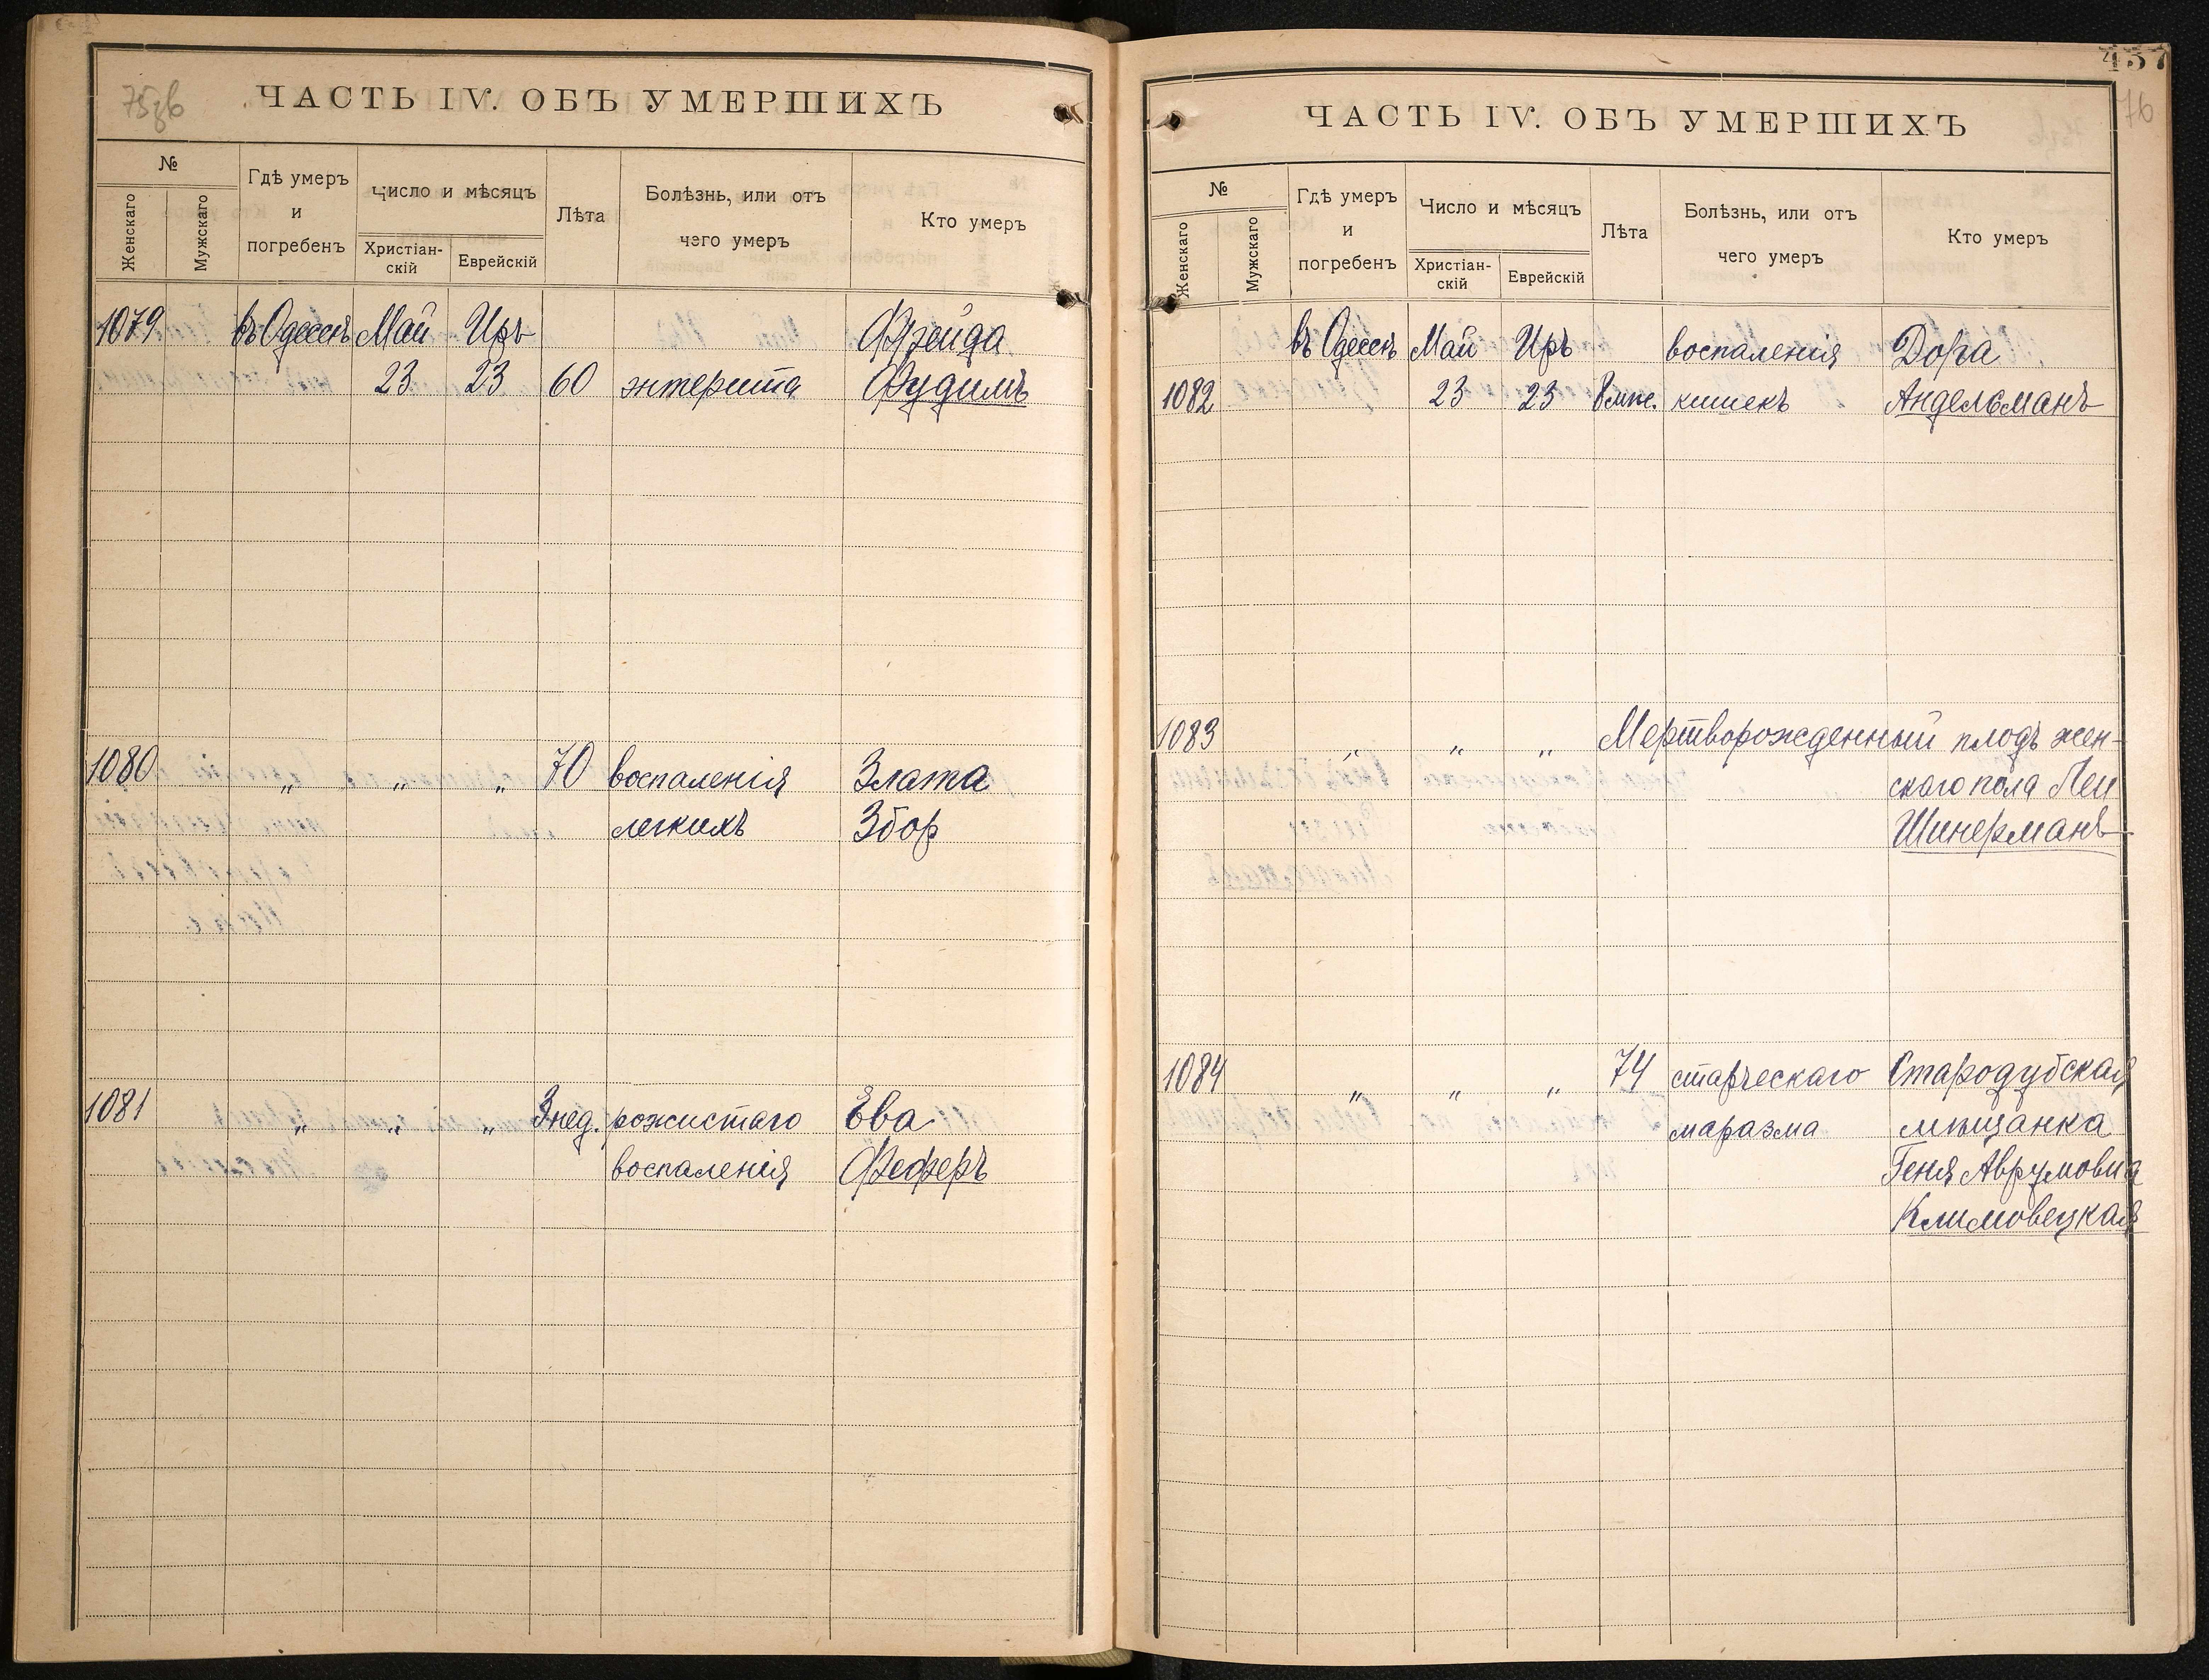 75зв
ЧАСТЬ IV. ОБЪ УМЕРШИХЪ
№
Женскаго
Мужскаго
Гдѣ умеръ
и
погребенъ
Число и мѣсяцъ
Христіан-
скій
Еврейскій
Лѣта
Болѣзнь, или отъ
чего умеръ
Кто умеръ
1079 въ Одессѣ Май Иръ Фрейда
23 23 60 энтерита Фудимъ
1080 „ „ „ 70 воспаленія Злата
легкихъ Збор
1081 „ „ „ 3 нед. рожистаго Ева
воспаленія Феферъ
437
76
ЧАСТЬ IV. ОБЪ УМЕРШИХЪ
№
Женскаго
Мужскаго
Гдѣ умеръ
и
погребенъ
Число и мѣсяцъ
Христіан-
скій
Еврейскій
Лѣта
Болѣзнь, или отъ
чего умеръ
Кто умеръ
въ Одессѣ Май Иръ воспаленія Дора
1082 23 23 8 мѣс. кишекъ Андельманъ
1083 „ „ „ Мертворожденный плодъ жен-
скаго пола Леи
Шинерманъ
1084 „ „ „ 74 старческаго Стародубская
маразма мѣщанка
Геня Аврумовна
Климовецкая